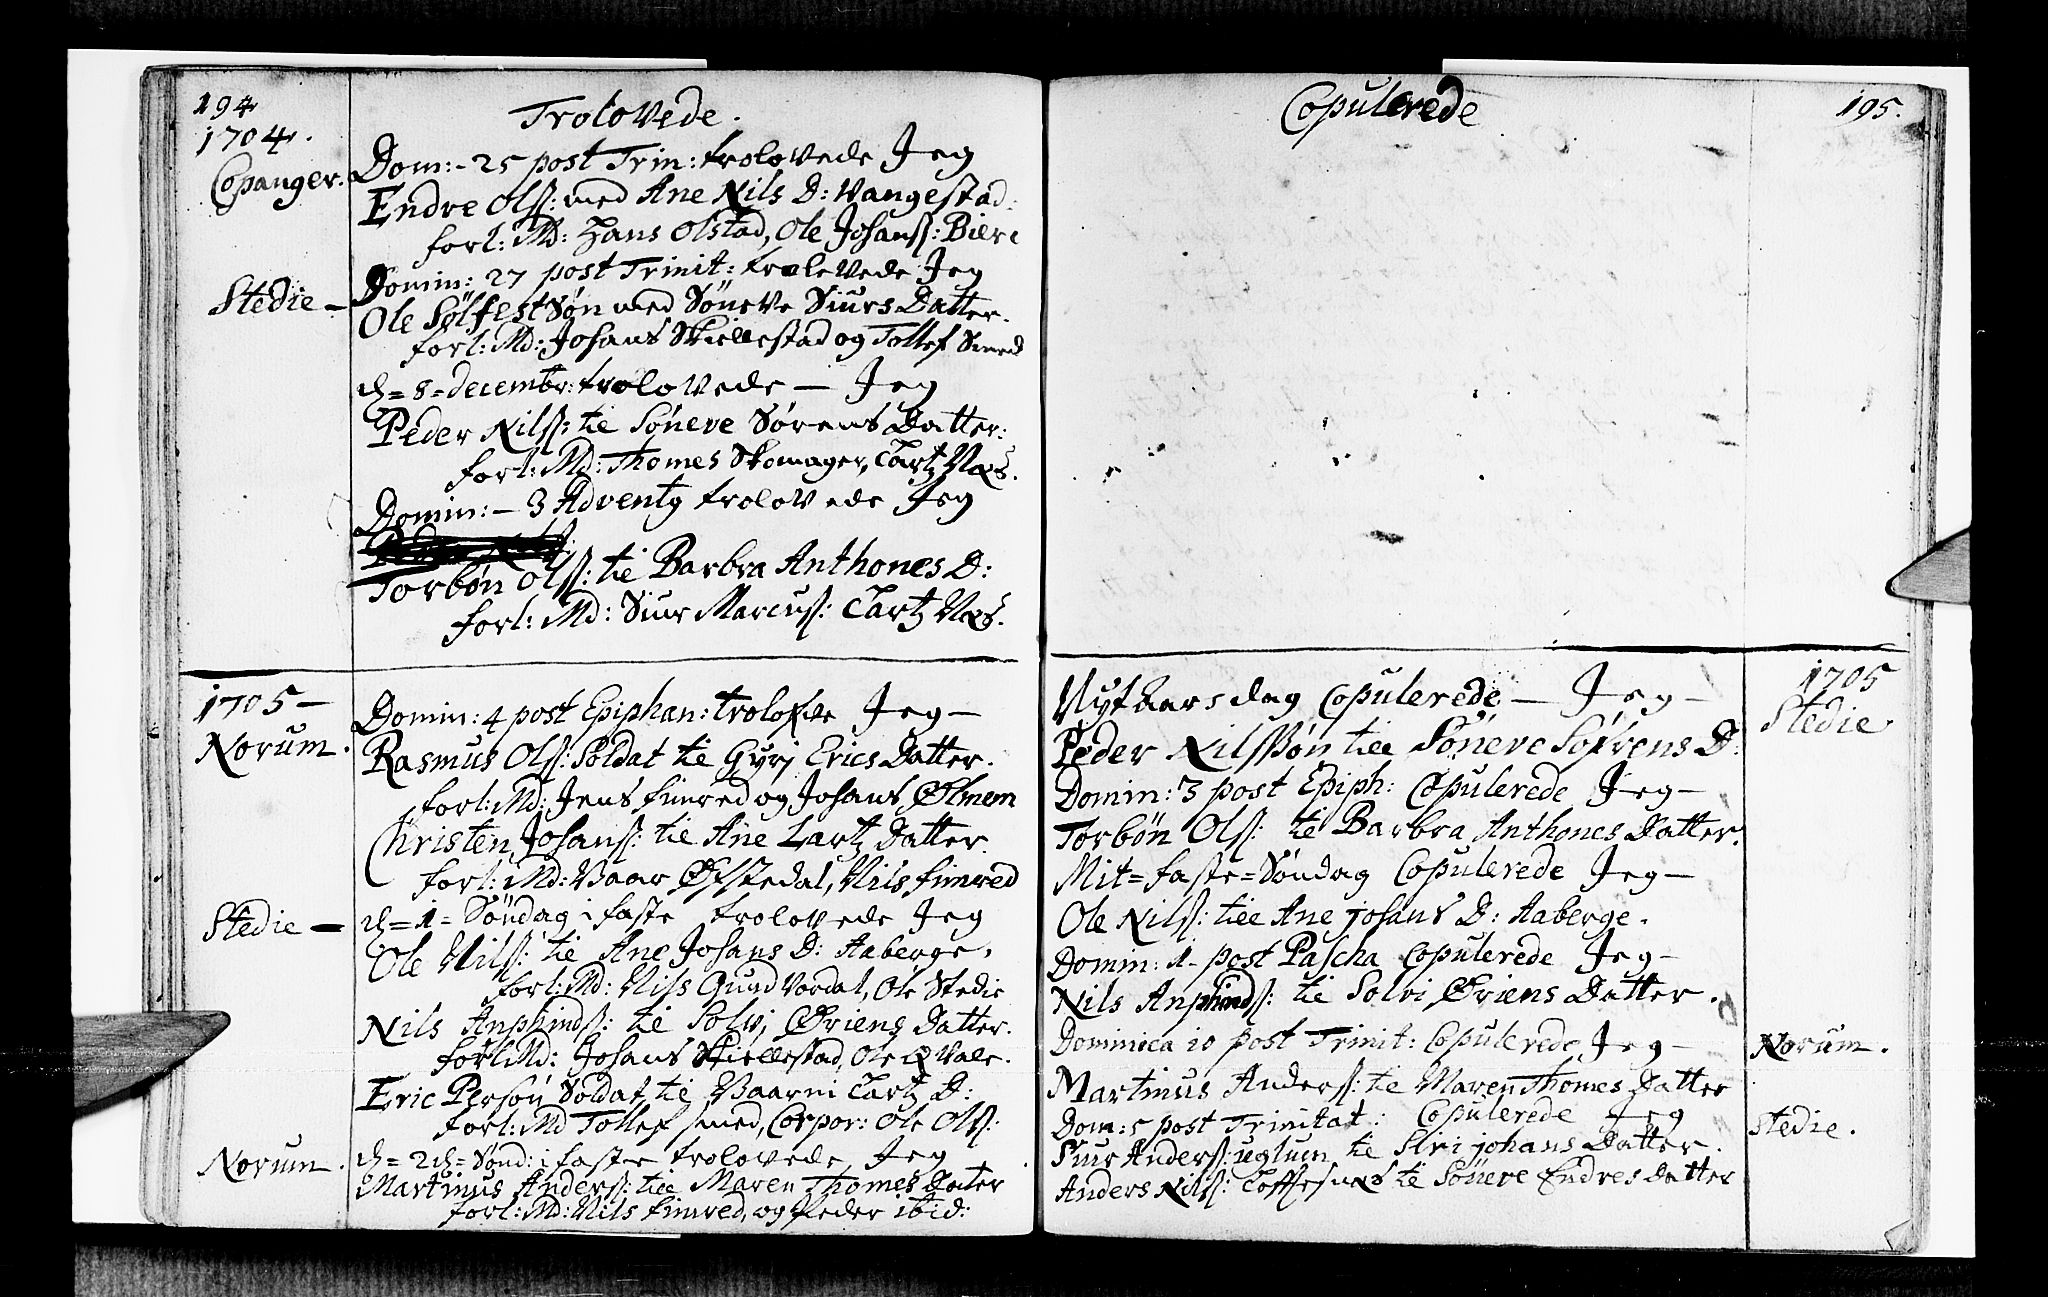 194
1704.
Trolovede.
Copanger. Dom:- 25 post Trin: trolovede Jeg
Endre Olss: med Ane Nils D: Vangestad.
forl: Md: Hans Olstad, Ole Johanss: Biere
Stedie - Domin: 27 post Trinit: trolovede Jeg
Ole Sølfestsøn med Søneve Siurs Datter.
forl: Md: Johans Skiellestad og Tollef Smed
d= 8= decembr: trolovede - Jeg
Peder Nilss: til Søneve Sørens Datter:
forl: Md: Thomes Skomager, Lartz Næs.
Domin: - 3 Adventz trolovede Jeg
Torbøn Olss: til Barbra Anthones D:
forl: Md: Siur Marcuss: Lartz Næs.
1705 - Domin: 4 post Epiphan: trolofve Jeg -
Norum. Rasmus Olss: Soldat til Gyrj Erics Datter.
forl: Md: Jens fimred og Johans Ølmem
Christen Johanss: til Ane Lartz Datter.
forl: Md: Baar Øfstedal, Nils fimred
Stedie - d= 1= Søndag i faste trolovede Jeg
Ole Nilss: til Ane Johans D: Aaberge.
forl: Md: Nils Gund Vordal, Ole Stedie
Nils Anphindss: til Solvj Øriens Datter.
forl: Md: Johans Skiellestad, Ole Qvale.
Eric Persøn Soldat til Baarni Lartz D:
forl: Md Tollef smed, Corpor: Ole Olss:
Norum. d= 2d= Sønd: i faste trolovede Jeg
Martinus Anderss: till Maren Thomes Dater
forl: Md: Nils fimred, og Peder ibid:
Copulerede
195.
Nytaarsdag Copulerede - Jeg - 1705
Peder Nilssøn till Søneve Sørens D: Stedie
Domin: 3 post Epiph: Copulerede Jeg -
Torbøn Olss: til Barbra Anthones Datter.
Mit=faste=Søndag Copulerede Jeg -
Ole Nilss: till Ane johans D: Aaberge.
Domin: 1- post Pascha Copulerede Jeg -
Nils Anphindss: til Solvi Øriens Datter.
Dominica 10 post Trinit: Copulerede Jeg - Norum.
Martinus Anderss: til Maren Thomes Datter
Dom: 5 post Trinitat: Copulerede Jeg Stedie.
Siur Anderss: uglum til Slri johans Datter.
Anders Nilss: Loftesnæs til Søneve Endres Datter